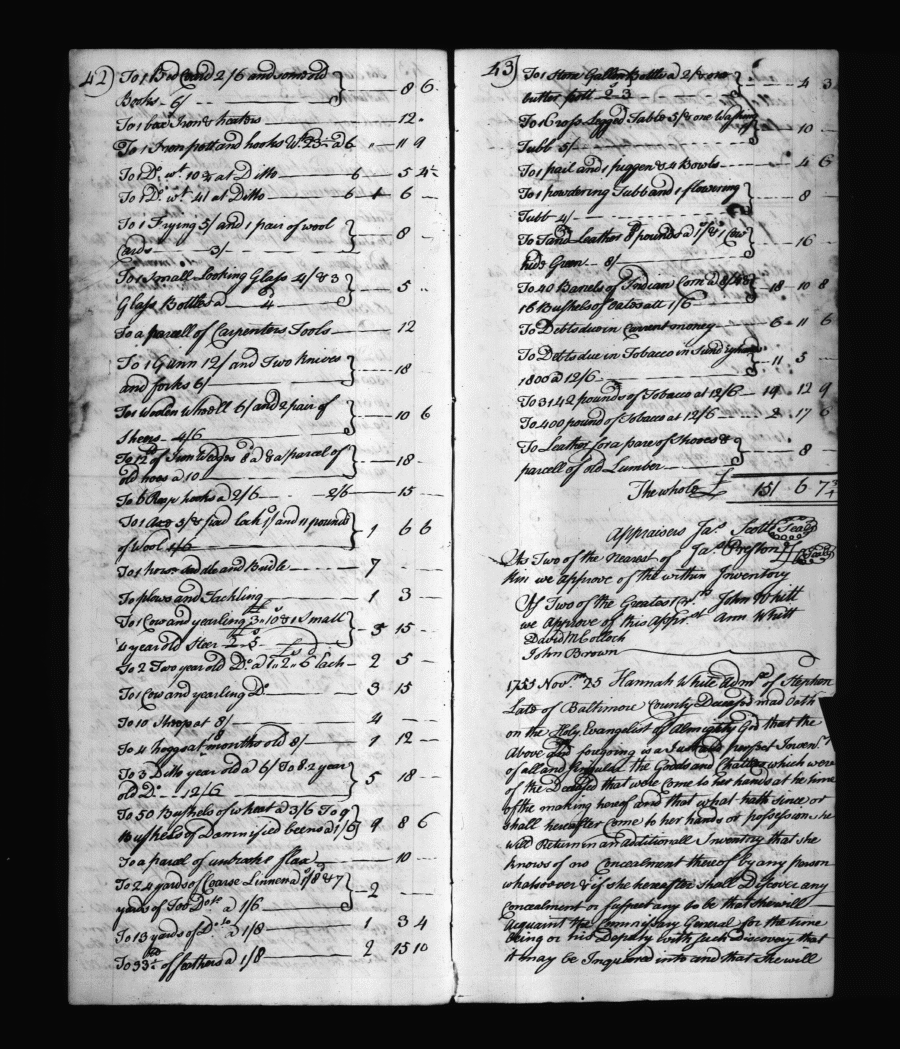 42) To 1 Bed Cord 2/6 and som old
Books - 6/ 8 6
To 1 box Iron & heaters 12 "
To 1 Iron pott and hooks Wt. 23 - a 6 " 11 9
To 1 Do. wt. 10 3/4 at Ditto 6 5 4 1/2
To 1 Do. wt. 41 at Ditto 6 1 6 -
To 1 Frying 5/ and 1 pair of wool
Cards 3/ 8 -
To 1 Small Looking Glass 4/ & 3
Glass Bottles a 4 5 "
To a parcell of Carpenters Tools 12
To 1 Gunn 12/ and Two knives
and forks 6/ 18
To 1 Woolen Wheell 6/ and 2 pair of
Sheers - 4/6 10 6
To 12 lb of Iron Wedges 8d & a parcel of
old hoes a 10 18 -
To 6 Reap hooks a 2/6 2/6 15 -
To 1 Axe 5/ & pad lock 1/ and 11 pounds
of Wool 1/6 1 6 6
To 1 horse saddle and Bridle 7 -
To plows and Tackling 1 3 -
To 1 Cow and yearling £3 " 10 s & 1 Small
4 year old Steer £2 - 5 s 5 15 -
To 2 Two year old Do. a £1 " 2 " 6 Each 2 5 -
To 1 Cow and yearling Do. 3 15
To 10 Sheep at 8/ 4 -
To 4 hoggs at 18 months old 8/ 1 12 -
To 3 Ditto year old a 6/ To 8 2 year
old Do. 12/6 5 18 -
To 50 Bushels of wheat a 3/6 To 9
Bushels of Damnified beens a 1/6 9 8 6
To a parcel of unbrake flax 10 -
To 24 yards of Coarse Linnen a 1/8 & 7
yards of Tob Do. a 1/6 2 -
To 13 yards of Do. a 1/8 1 3 4
To 33 lb. of feathers a 1/8 2 15 10
43) To 1 Stone Gallon Bottle a 2/ & one
butter pott 2 3 4 3
To 1 Cross Legged Table 5/ & one Washing
Tubb 5/ 10 -
To 1 pail and 1 piggen & 4 Bowls 4 6
To 1 powdering Tubb and 1 flowering
Tubb 4/ 8 -
To Tand Leather 8 pounds a 1/ & 1 Cow
hide Green 8/ 16 -
To 40 Barrels of Indian Corn a 8/
16 Bushels of oates att 1/6 18 10 8
To Debts due in Current money 6 11 6
To Debts due in Tobacco in
1800 a 12/6 11 5 -
To 3142 pounds of Tobacco at 12/6 19 12 9
To 400 pound of Tobacco at 12/6 2 17 6
To Leather for a pare of Shooes &
parcell of old Lumber 8 -
The whole £ 151 6 7 3/4
Appraisers Jas. Scott (Seal)
As Two of the nearest of Jas. Preston (Seal)
kin we approve of the within Inventory
As Two of the Greatest Crrs. John Whitt
we approve of this Apprmt Ann Whitt
David McColloch
John Brown
1755 Novr. 25 Hannah White Admx of Stephen
Late of Baltimore County Deceased mad oath
on the Holy Evangelist of Almighty God that the
Above and foregoing is a Just and perfect Inventy
of all and Singular the Goods and Chattels which were
of the Deceased that were Come to her hands at the time
of the making hereof and that what hath since or
shall hereafter come to her hands or possession she
will Return in an additionall Inventory that she
knows of no Concealment thereof by any person
whatsoever & if she hereafter shall Discover any
Concealment or suspect any to be that she will
Acquaint the Commissary General for the time
being or his Deputy with such Discovery that
it may be Inquired into and that she will